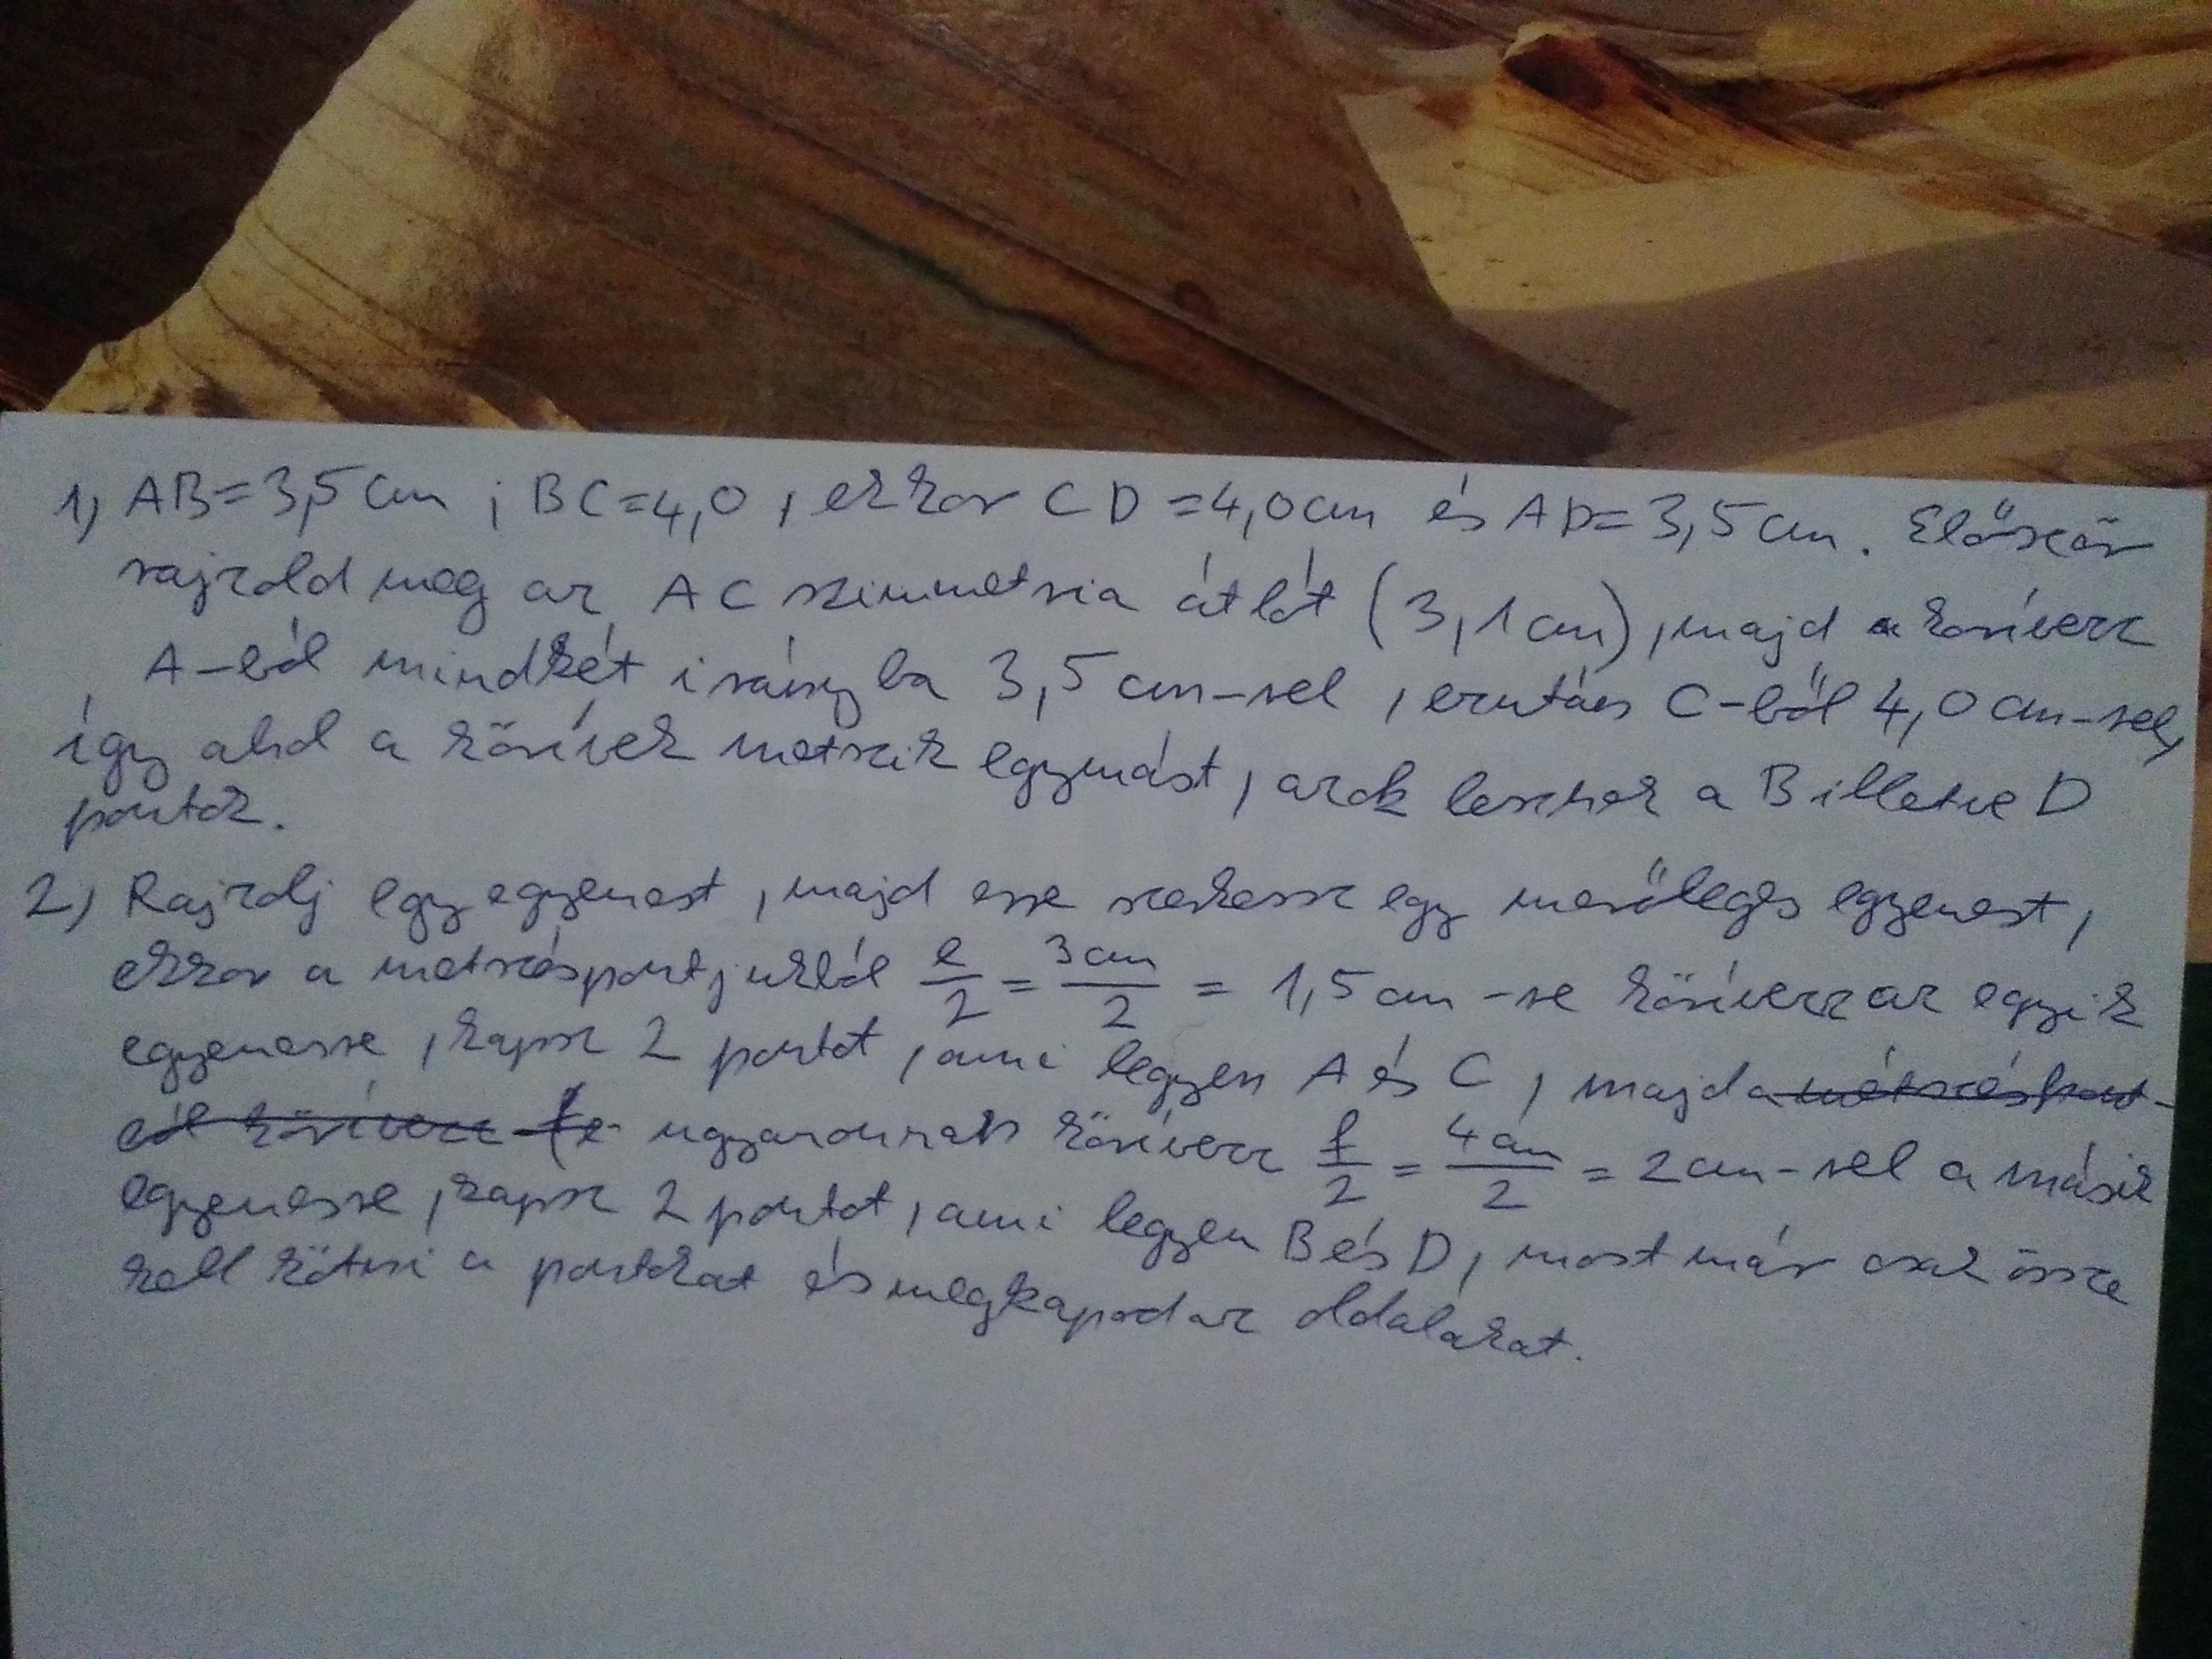 1, AB=3,5 cm ; BC=4,0 , ekkor CD =4,0cm és AD=3,5 cm. Először
rajzold meg az AC szimmetria átlót (3,1cm), majd a körívezz
A-ból mindkét irányba 3,5 cm-rel, ezután C-ből 4,0 cm-rel,
így ahol a körívek metszik egymást, azok lesznek a B illetve D
pontok.
2, Rajzolj egy egyenest, majd erre szerkessz egy merőleges egyenest,
ekkor a metszéspontjukból e/2 = 3cm/2 = 1,5 cm -re körívezz az egyik
egyenesre, kapsz 2 pontot, ami legyen A és C, majd a metszéspont-
ból körívezz ugyanonnan körívezz f/2 = 4cm/2 = 2cm-rel a másik
egyenesre, kapsz 2 pontot, ami legyen B és D, most már csak össze
kell kötni a pontokat és megkapod az oldalakat.